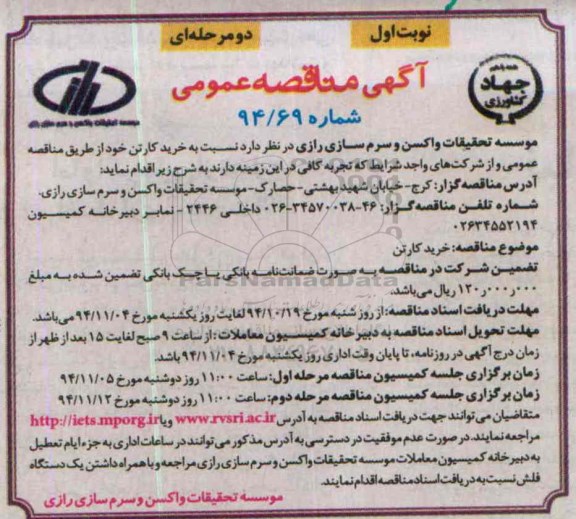 نوبت اول
دو مرحله‌ای
آگهی مناقصه عمومی
شماره ۹۴/۶۹
جهاد
کشاورزی
موسسه تحقیقات واکسن و سرم سازی رازی
موسسه تحقیقات واکسن و سرم سازی رازی در نظر دارد نسبت به خرید کارتن خود از طریق مناقصه
عمومی و از شرکت‌های واجد شرایط که تجربه کافی در این زمینه دارند به شرح زیر اقدام نماید:
آدرس مناقصه گزار: کرج - خیابان شهید بهشتی - حصارک - موسسه تحقیقات واکسن و سرم سازی رازی.
شماره تلفن مناقصه گزار: ۴۶-۳۴۵۷۰۰۳۸-۰۲۶ داخلی ۲۴۴۶ - نمابر دبیرخانه کمیسیون
۰۲۶۳۴۵۵۲۱۹۴
موضوع مناقصه: خرید کارتن
تضمین شرکت در مناقصه به صورت ضمانت‌نامه بانکی یا چک بانکی تضمین شده به مبلغ
۱۳۰٫۰۰۰٫۰۰۰ ریال می‌باشد.
مهلت دریافت اسناد مناقصه: از روز شنبه مورخ ۹۴/۱۰/۱۹ لغایت روز یکشنبه مورخ ۹۴/۱۱/۰۴ می‌باشد.
مهلت تحویل اسناد مناقصه به دبیرخانه کمیسیون معاملات: از ساعت ۹ صبح لغایت ۱۵ بعد از ظهر از
زمان درج آگهی در روزنامه، تا پایان وقت اداری روز یکشنبه مورخ ۹۴/۱۱/۰۴ باشد.
زمان برگزاری جلسه کمیسیون مناقصه مرحله اول: ساعت ۱۱:۰۰ روز دوشنبه مورخ ۹۴/۱۱/۰۵
زمان برگزاری جلسه کمیسیون مناقصه مرحله دوم: ساعت ۱۱:۰۰ روز دوشنبه مورخ ۹۴/۱۱/۱۲
متقاضیان می‌توانند جهت دریافت اسناد مناقصه به آدرس www.rvsri.ac.ir و یا http://iets.mporg.ir
مراجعه نمایند. در صورت عدم موفقیت در دسترسی به آدرس مذکور می‌توانند در ساعات اداری به جزء ایام تعطیل
به دبیرخانه کمیسیون معاملات موسسه تحقیقات واکسن و سرم سازی رازی مراجعه و با همراه داشتن یک دستگاه
فلش نسبت به دریافت اسناد مناقصه اقدام نمایند.
موسسه تحقیقات واکسن و سرم سازی رازی
ParsNamadData